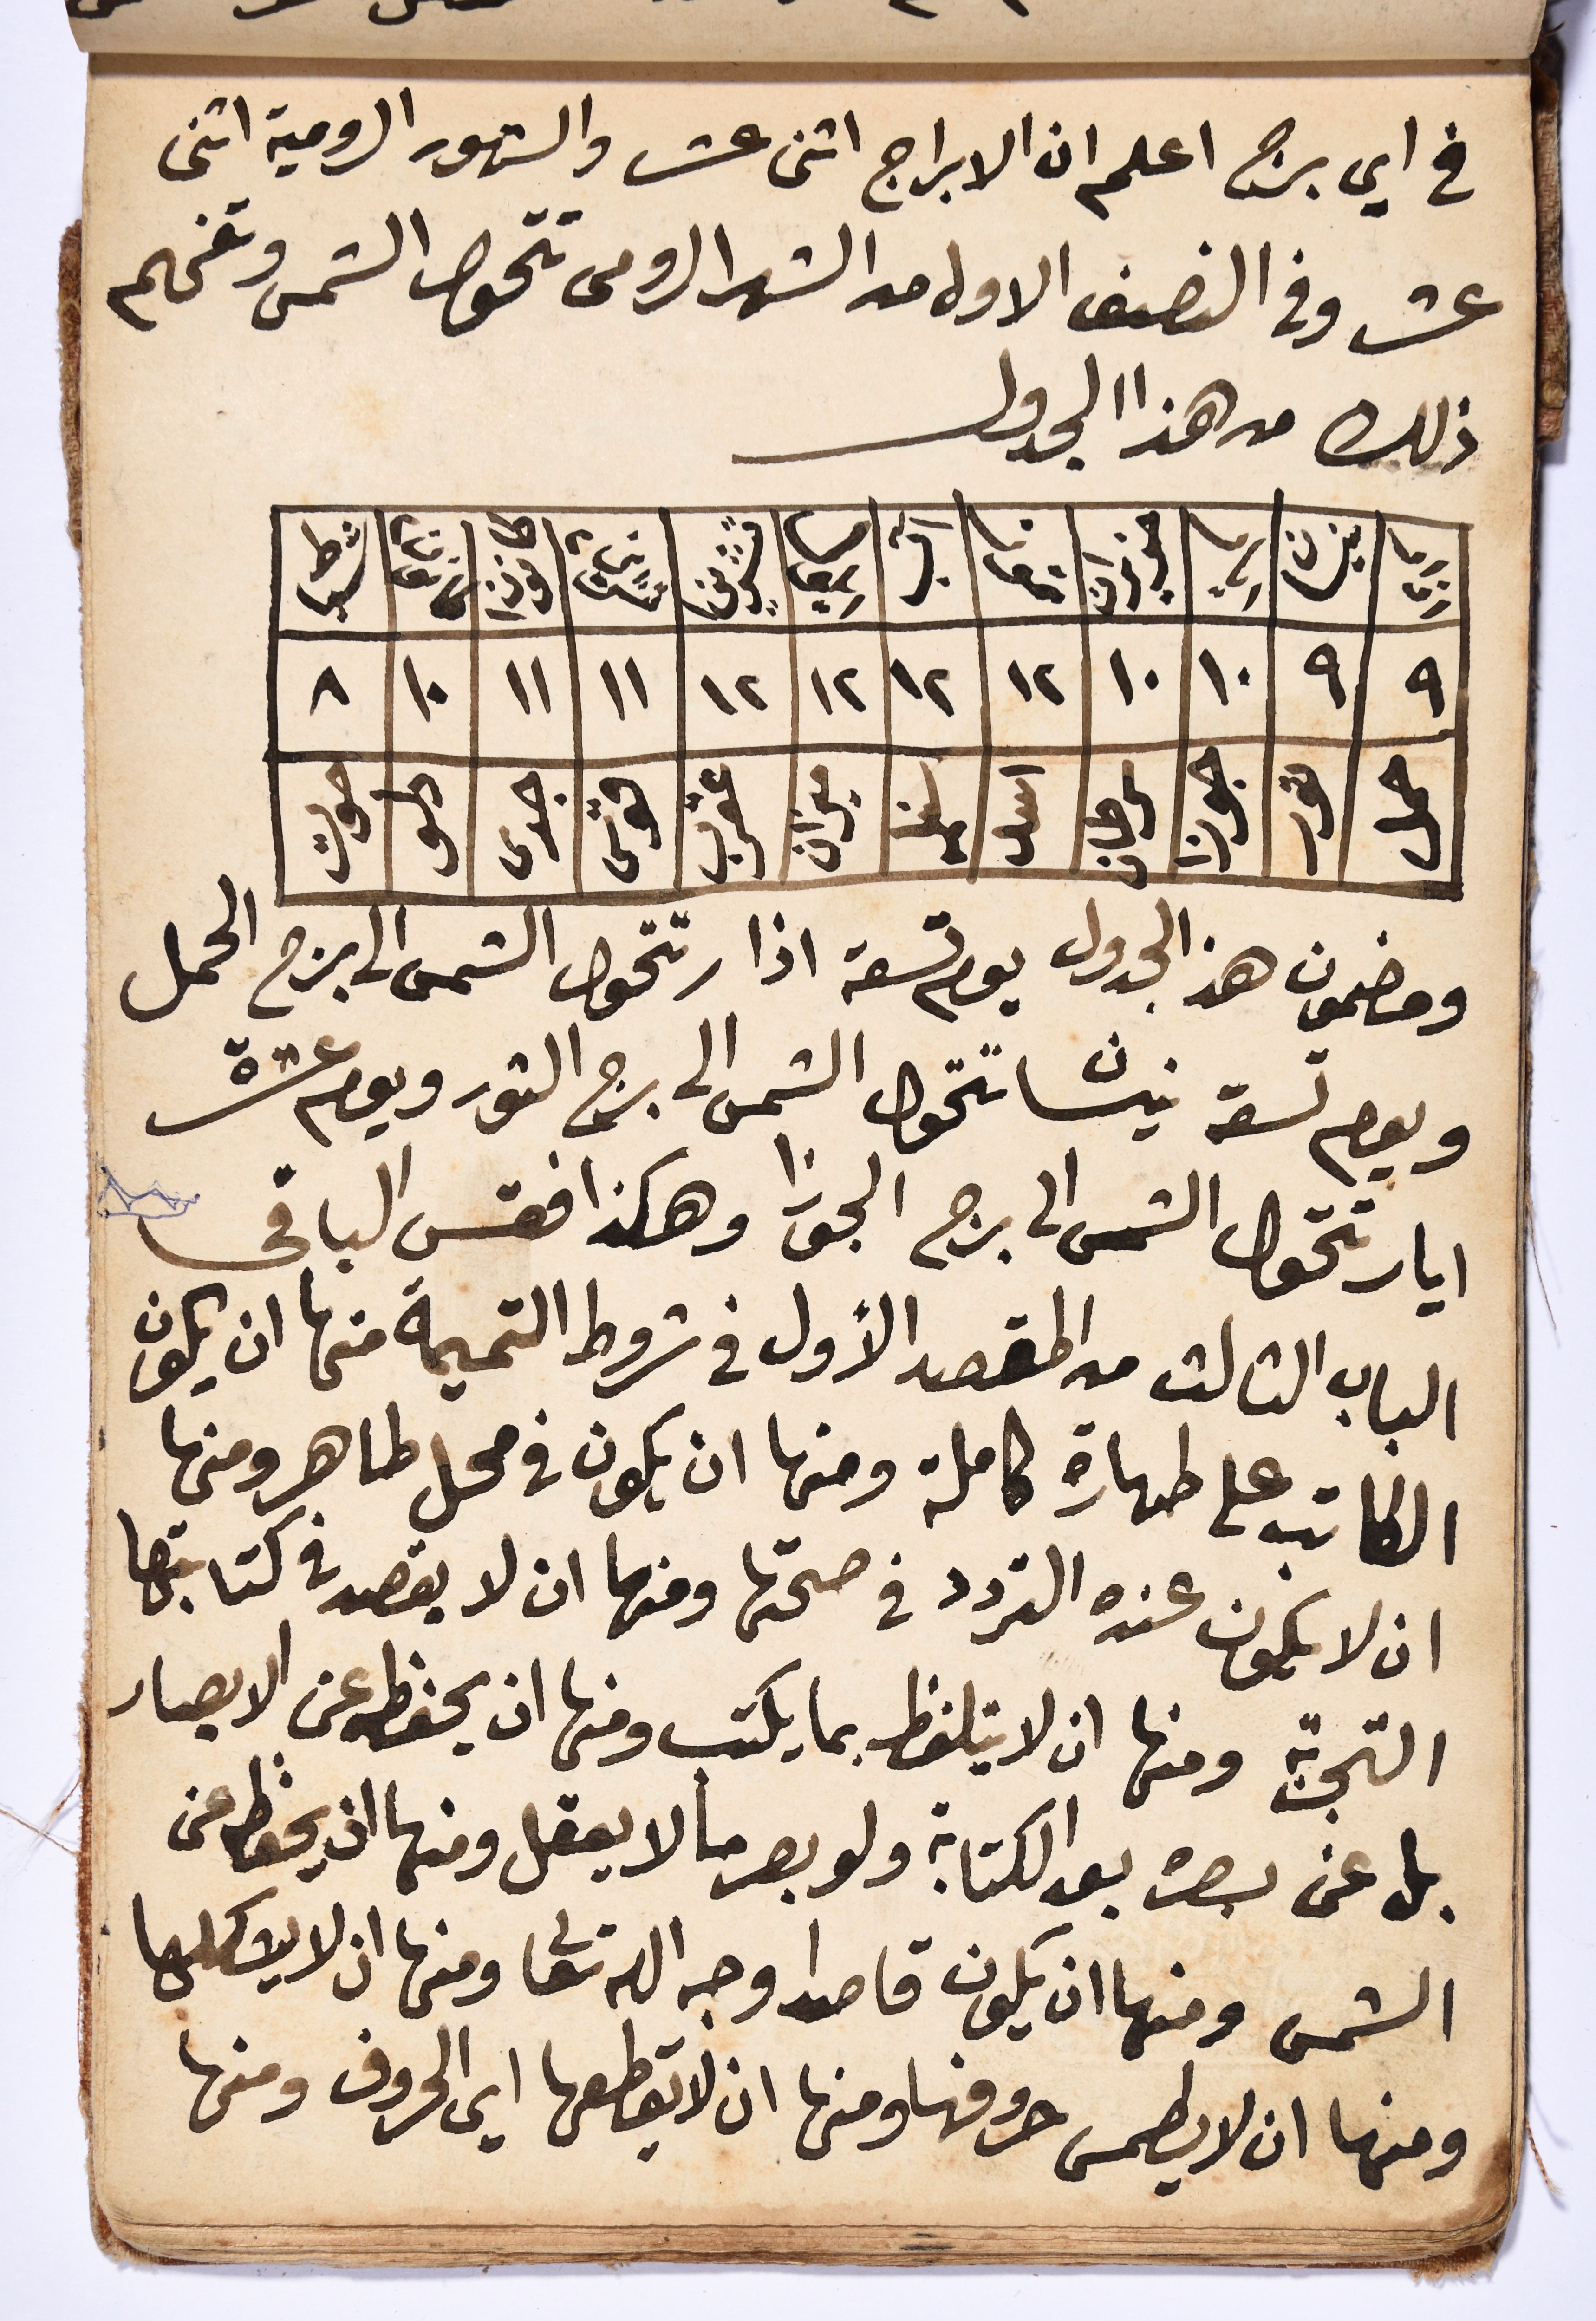 في اي برج اعلم ان الابراج اثنى عشر والشهور الرومية اثنى
عشر وفي النصف الاول من الشهر الرومى تتحول الشمس وتفهم
ذلك من هذا الجدول
اذار نيسان ايار حزيران تموز آب ايلول تشرين١ تشرين ثاني كانون١ كانون ثاني شباط
٩ ٩ ١٠ ١٠ ١٢ ١٢ ١٢ ١٢ ١١ ١١ ١٠ ٨
حمل ثور جوزا سرطان اسد سنبله ميزان عقرب قوس جدى دلو حوت
ومضمون هذ الجدول يوم تسعة اذار تتحول الشمس الى برج الحمل
ويوم تسعة نيسان تتحول الشمس الى برج الثور ويوم عشرة
ايار تتحول الشمس الى برج الجوزا وهكذا فقس الباقي
الباب الثالث من المقصد الأول في شروط التميمة منها ان يكون
الكاتب على طهارة كاملة ومنها ان يكون في محل طاهر ومنها
ان لا يكون عنده التردد في صحتها ومنها ان لا يقصد في كتابتها
التجربة ومنها ان لا يتلفظ بما يكتب ومنها ان يحفظ عن الابصار
بل عن بصره بعد الكتابة ولو بصر ما لا يعقل ومنها ان يحفظ عن
الشمس ومنها ان يكون قاصدا وجه الله تعالى ومنها ان لا يشكلها
ومنها ان لا يطمس حروفها ومنها ان لا يقطعها اي الحروف ومنها